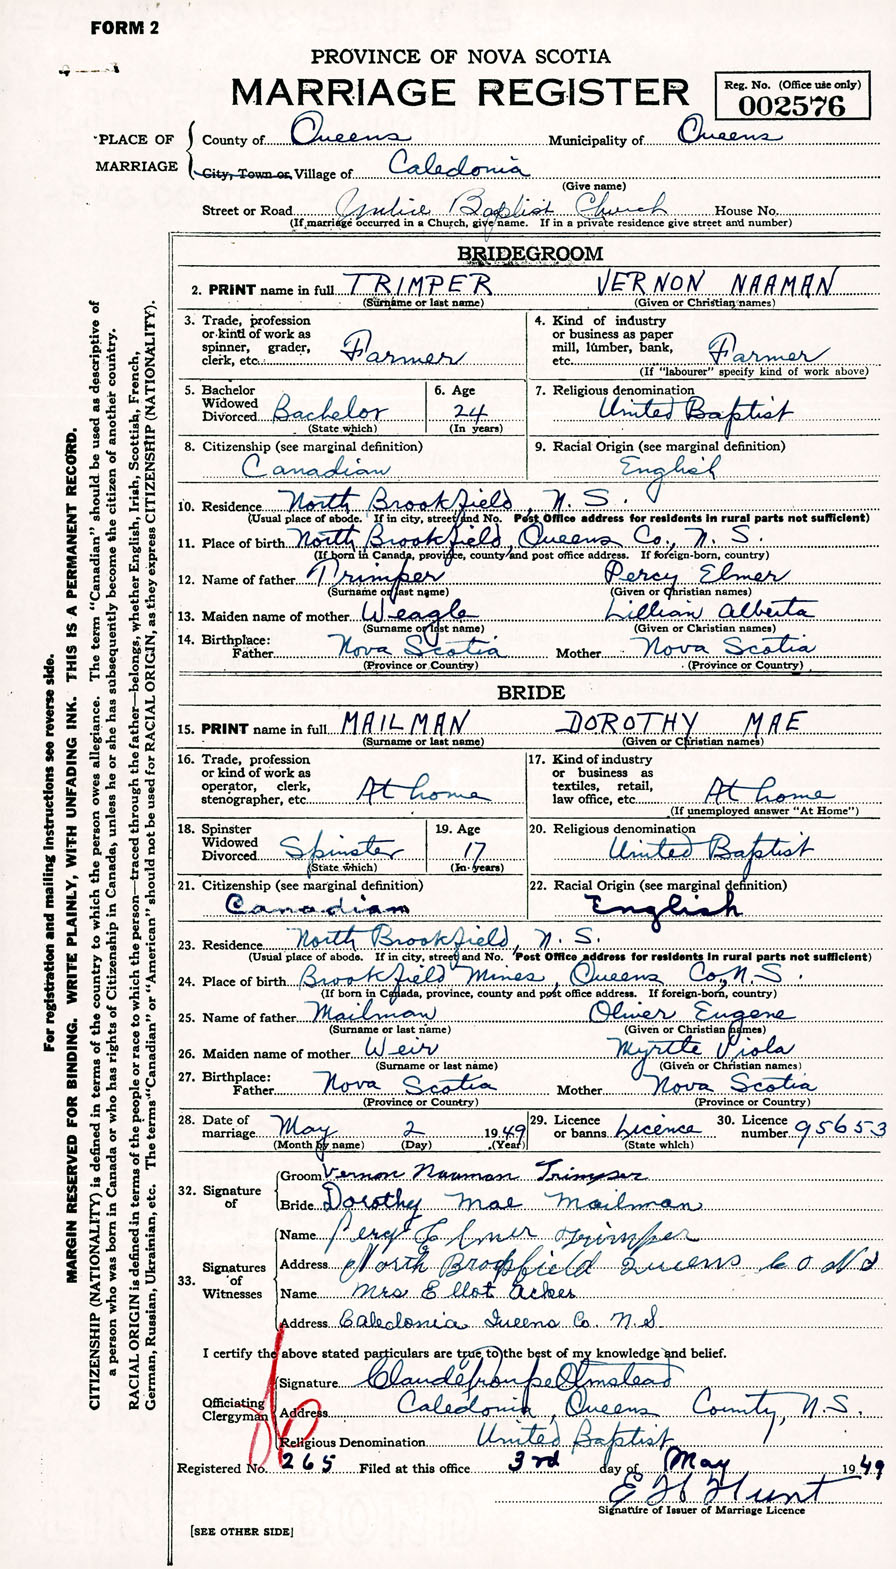 FORM 2
PROVINCE OF NOVA SCOTIA
MARRIAGE REGISTER
Reg. No. (Office use only)
002576
PLACE OF MARRIAGE
County of Queens Municipality of Queens
City, Town or Village of Caledonia
(Give name)
Street or Road Baptist Church House No.
(If marriage occurred in a Church, give name. If in a private residence give street and number)
BRIDEGROOM
2. PRINT name in full TRIMPER VERNON NAAMAN
(Surname or last name) (Given or Christian names)
3. Trade, profession or kind of work as spinner, grader, clerk, etc. Farmer
4. Kind of industry or business as paper mill, lumber, bank, etc. Farmer
(If "labourer" specify kind of work above)
5. Bachelor Widowed Divorced Bachelor
(State which)
6. Age 24
(In years)
7. Religious denomination United Baptist
8. Citizenship (see marginal definition) Canadian
9. Racial Origin (see marginal definition) English
10. Residence North Brookfield, N. S.
(Usual place of abode. If in city, street and No. Post Office address for residents in rural parts not sufficient)
11. Place of birth North Brookfield, Queens Co., N. S.
(If born in Canada, province, county and post office address. If foreign-born, country)
12. Name of father Trimper Percy Elmer
(Surname or last name) (Given or Christian names)
13. Maiden name of mother Weagle Lillian Alberta
(Surname or last name) (Given or Christian names)
14. Birthplace: Father Nova Scotia Mother Nova Scotia
(Province or Country) (Province or Country)
BRIDE
15. PRINT name in full MAILMAN DOROTHY MAE
(Surname or last name) (Given or Christian names)
16. Trade, profession or kind of work as operator, clerk, stenographer, etc. At home
17. Kind of industry or business as textiles, retail, law office, etc. At home
(If unemployed answer "At Home")
18. Spinster Widowed Divorced Spinster
(State which)
19. Age 17
(In years)
20. Religious denomination United Baptist
21. Citizenship (see marginal definition) Canadian
22. Racial Origin (see marginal definition) English
23. Residence North Brookfield, N. S.
(Usual place of abode. If in city, street and No. Post Office address for residents in rural parts not sufficient)
24. Place of birth Brookfield Mines, Queens Co., N. S.
(If born in Canada, province, county and post office address. If foreign-born, country)
25. Name of father Mailman Oliver Eugene
(Surname or last name) (Given or Christian names)
26. Maiden name of mother Weir Myrtle Viola
(Surname or last name) (Given or Christian names)
27. Birthplace: Father Nova Scotia Mother Nova Scotia
(Province or Country) (Province or Country)
28. Date of marriage May 2 1949
(Month by name) (Day) (Year)
29. Licence or banns Licence
(State which)
30. Licence number 95653
32. Signature of
Groom Vernon Naaman Trimper
Bride Dorothy Mae Mailman
33. Signatures of Witnesses
Name Percy Elmer Trimper
Address North Brookfield Queens Co N S
Name Mrs Ellot Acker
Address Caledonia Queens Co. N.S.
I certify the above stated particulars are true to the best of my knowledge and belief.
Officiating Clergyman
Signature Claude Olmstead
Address Caledonia, Queens County, N.S.
Religious Denomination United Baptist
Registered No. 265 Filed at this office 3rd day of May 1949
E H Hunt
Signature of Issuer of Marriage Licence
[SEE OTHER SIDE]
For registration and mailing instructions see reverse side.
MARGIN RESERVED FOR BINDING. WRITE PLAINLY, WITH UNFADING INK. THIS IS A PERMANENT RECORD.
CITIZENSHIP (NATIONALITY) is defined in terms of the country to which the person owes allegiance. The term "Canadian" should be used as descriptive of
a person who was born in Canada or who has rights of Citizenship in Canada, unless he or she has subsequently become the citizen of another country.
RACIAL ORIGIN is defined in terms of the people or race to which the person—traced through the father—belongs, whether English, Irish, Scottish, French,
German, Russian, Ukrainian, etc. The terms "Canadian" or "American" should not be used for RACIAL ORIGIN, as they express CITIZENSHIP (NATIONALITY).